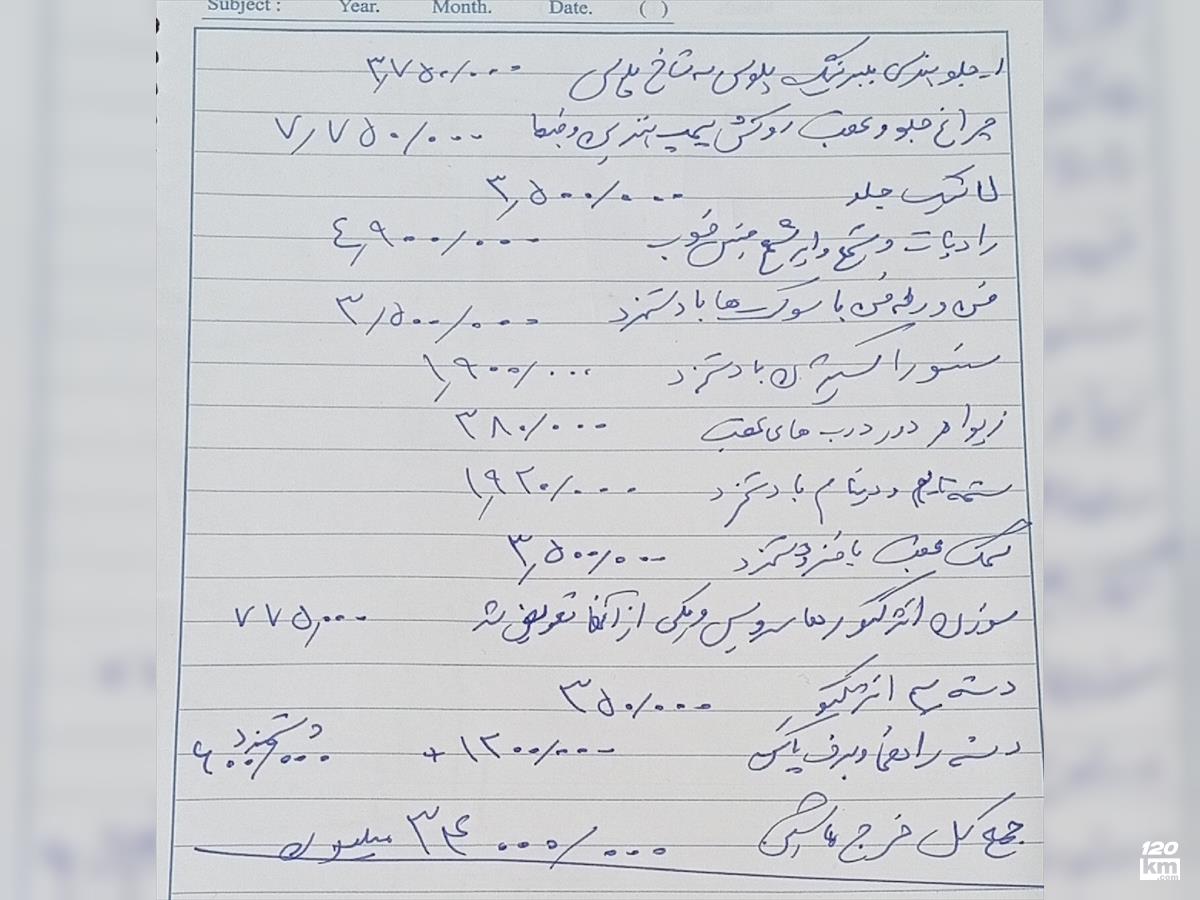 Subject : Year. Month. Date. ( )
۱ـ جلوبندی بلبرینگ پلوس سه شاخ پلوس ۳,۷۵۰/۰۰۰
چراغ جلو و عقب روکش پمپ بنزین و ۷,۷۵۰/۰۰۰
لاستیک جلو ۳,۵۰۰/۰۰۰
رادیات و شمع وایر شمع جنس خوب ٤,۹۰۰/۰۰۰
فن و رله فن با سوکت ها با دستمزد ۳,۵۰۰/۰۰۰
سنسور اکسیژن با دستمزد ۱,۹۰۰/۰۰۰
زیوار دور درب های عقب ۳۸۰/۰۰۰
تسمه تایم و دینام با دستمزد ۱,۹۲۰/۰۰۰
کمک عقب با فنر و دستمزد ۳,۵۰۰/۰۰۰
سوزن انژکتورها سرویس و یکی از آنها تعویض شد ۷۷۵,۰۰۰
دسته سیم انژکتور ۳۵۰/۰۰۰
دسته راهنما و برف پاکن ۱۲۰۰/۰۰۰ + دستمزد ۶۰۰/۰۰۰
جمع کل خرج ماشین ۳۴ ۰۰۰/۰۰۰ میلیون
120
km
.com